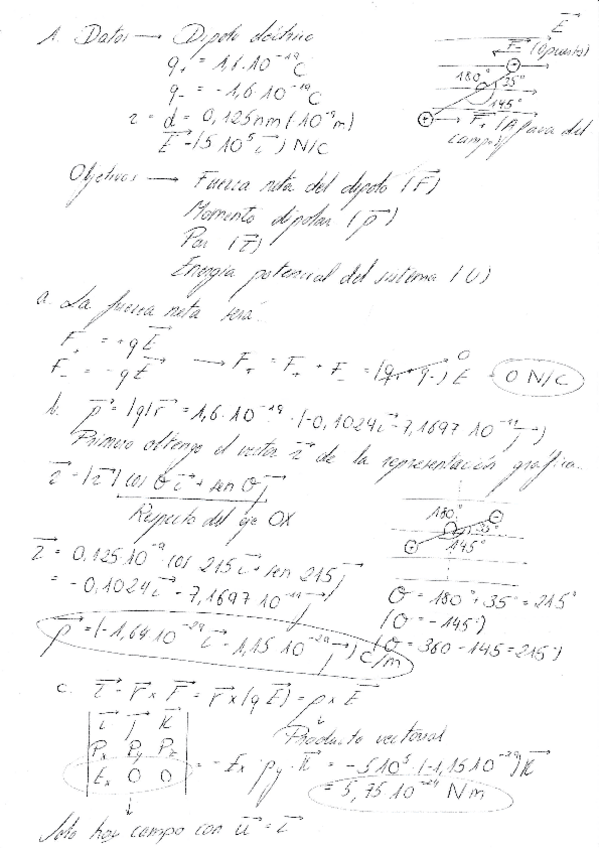 1. Datos → Dipolo eléctrico
q₊ = 1,6·10⁻¹⁹ C
q₋ = -1,6·10⁻¹⁹ C
r = d = 0,125nm (10⁻⁹m)
E = (5·10⁵ i) N/C
E
F₋ (Opuesto)
180°
35°
145°
F₊ (A favor del
campo)
Objetivos → Fuerza neta del dipolo (F)
Momento dipolar (p)
Par (τ)
Energía potencial del sistema (U)
a. La fuerza neta será:
F₊ = +qE
F₋ = -qE → F₊ = F₊ + F₋ = (q₊ + q₋) E = 0 N/C
0
b. p = |q|r = 1,6·10⁻¹⁹ · (-0,1024 i - 7,1697·10⁻¹¹ j)
Primero obtengo el vector r de la representación gráfica.
r = |r| cos θ i + sen θ j
Respecto del eje OX
180°
35°
145°
r = 0,125·10⁻⁹ · cos 215 i + sen 215 j
= -0,1024 i - 7,1697·10⁻¹¹ j
θ = 180° + 35° = 215°
(θ = -145°)
(θ = 360 - 145 = 215°)
p = (-1,64·10⁻²⁹ i - 1,15·10⁻²⁹ j) C/m
c. τ = r x F = r x (qE) = p x E
Producto vectorial
i j k
Px Py Pz
Ex 0 0
= -Ex · py · k = -5·10⁵ · (-1,15·10⁻²⁹) k
= 5,75·10⁻²⁴ Nm
Solo hay campo con u = i